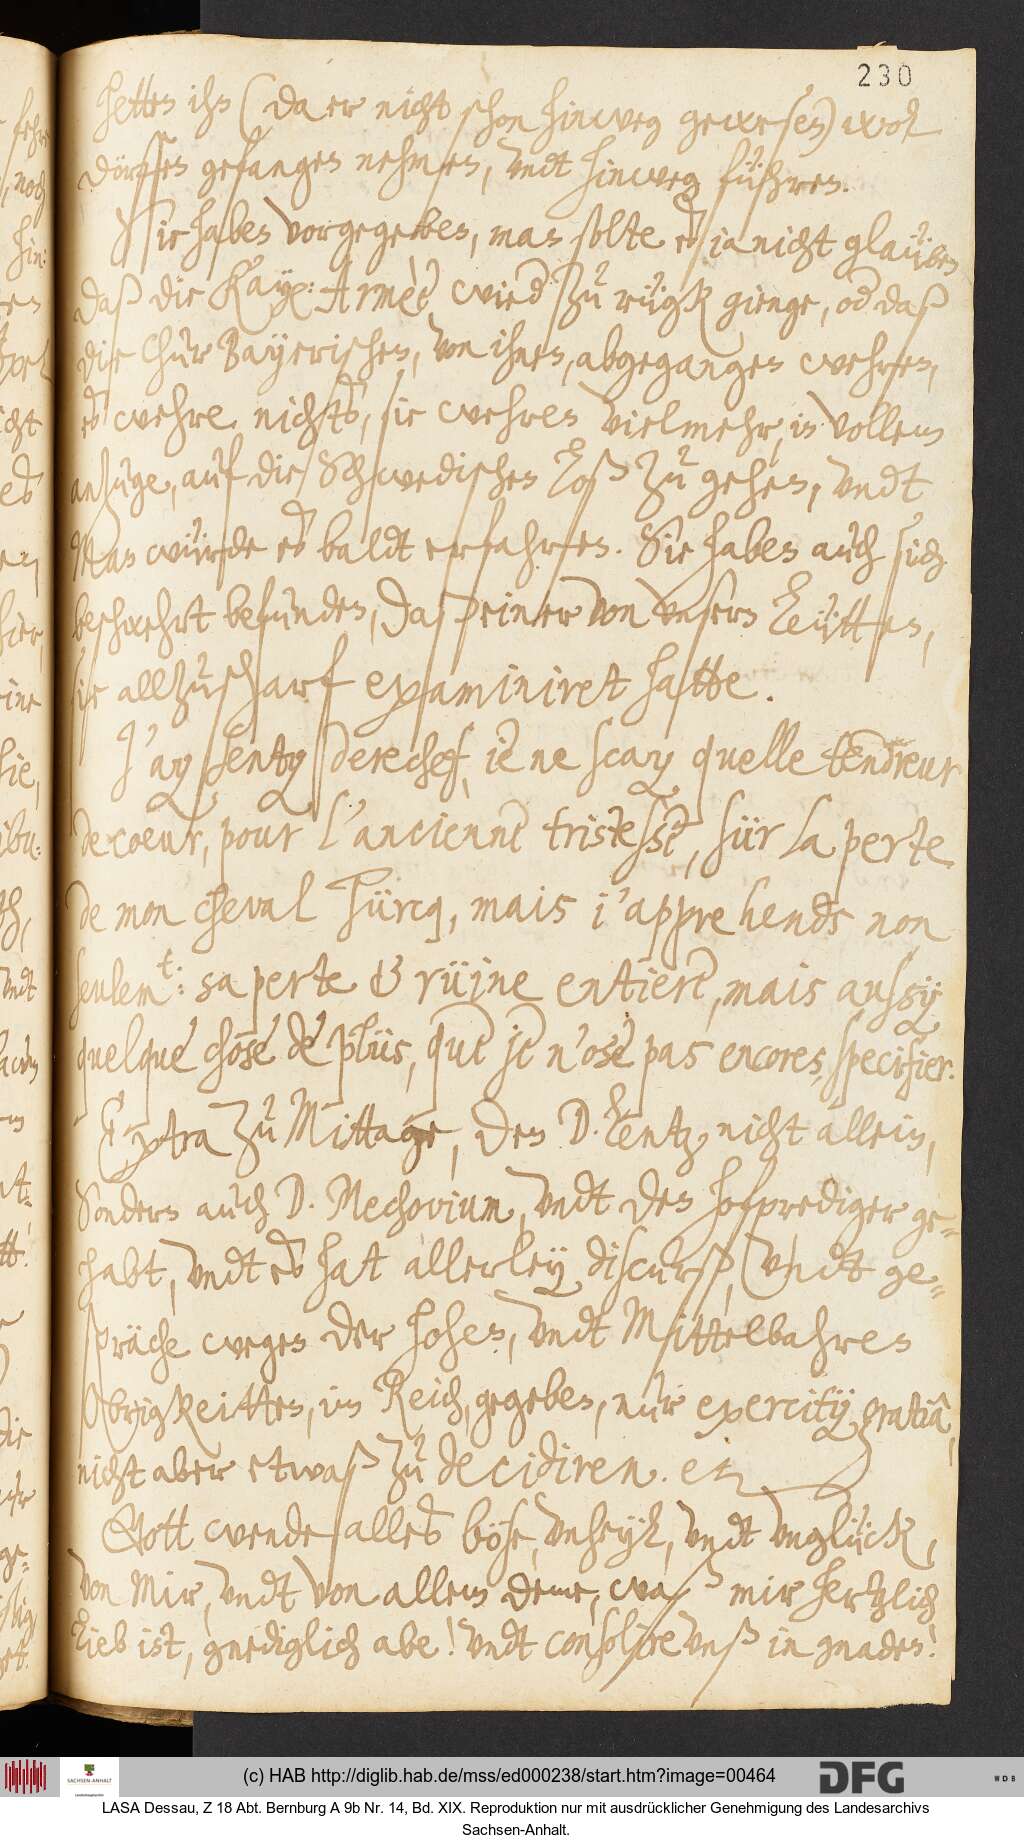 230
hetten ihn (da er nicht schon hinweg gewesen) wol
dörffen gefangen nehmen, undt hinweg führen.
Sie haben vorgegeben, man solte es ja nicht glaüben
daß die Kay: Armèe, wied zu rügk gienge, od daß
die Chur Bayerischen, von ihnen, abgegangen wehren,
es wehre nichts, sie wehren vielmehr, in vollem
anzuge, auf die Schwedischen loß zu gehen, undt
Man würde es baldt erfahren. Sie haben auch sich
beschwehrt befunden, daß einer von unsern leütten,
sie allzuscharf examiniret hatte.
J'ay senty derechef, ie ne scay quelle tendreur
de coeur, pour l'ancienne tristesse, sür la perte
de mon cheval Türcq, mais i'apprehends non
seulem t: sa perte & rüine entiere, mais aussy
quelque chose de plüs, que je n'ose pas encores, specifier:
Extra zu Mittage, den D. Lentz nicht allein,
Sondern auch D. Mechovium, undt den hofprediger ge=
habt, undt es hat allerley discurß, undt ge=
spräche wegen der hohen, undt Mittelbahren
Obrigkeitten, im Reich, gegeben, nur exercitij gratiâ,
nicht aber etwaß zu decidiren. etc
Gott wende alles böse, unheyl, undt unglück,
von Mir, undt von allem deme, waß mir hertzlich
lieb ist, gnediglich abe! undt consolire unß in gnaden!
(c) HAB http://diglib.hab.de/mss/ed000238/start.htm?image=00464
SACHSEN-ANHALT
DFG
WDB
LASA Dessau, Z 18 Abt. Bernburg A 9b Nr. 14, Bd. XIX. Reproduktion nur mit ausdrücklicher Genehmigung des Landesarchivs
Sachsen-Anhalt.